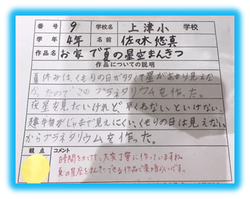 番号 9 学校名 上津小 学校
学年 4年 名前 佐々木 悠真
作品名 お家で夏の星空まんきつ
作品についての説明
夏休みは、くもりの日が多くて星があまり見えな
かったので、このプラネタリウムを作った。
夜星を見たいけれど、やくもないといけない。
建物がじゃまで見えにくい、くもりの日は見えない
からプラネタリウムを作った。
観点 コメント
時間をかけて、大変丁寧に作っていますね。
夏の星座をまんきつできる作品で素晴らしいです。